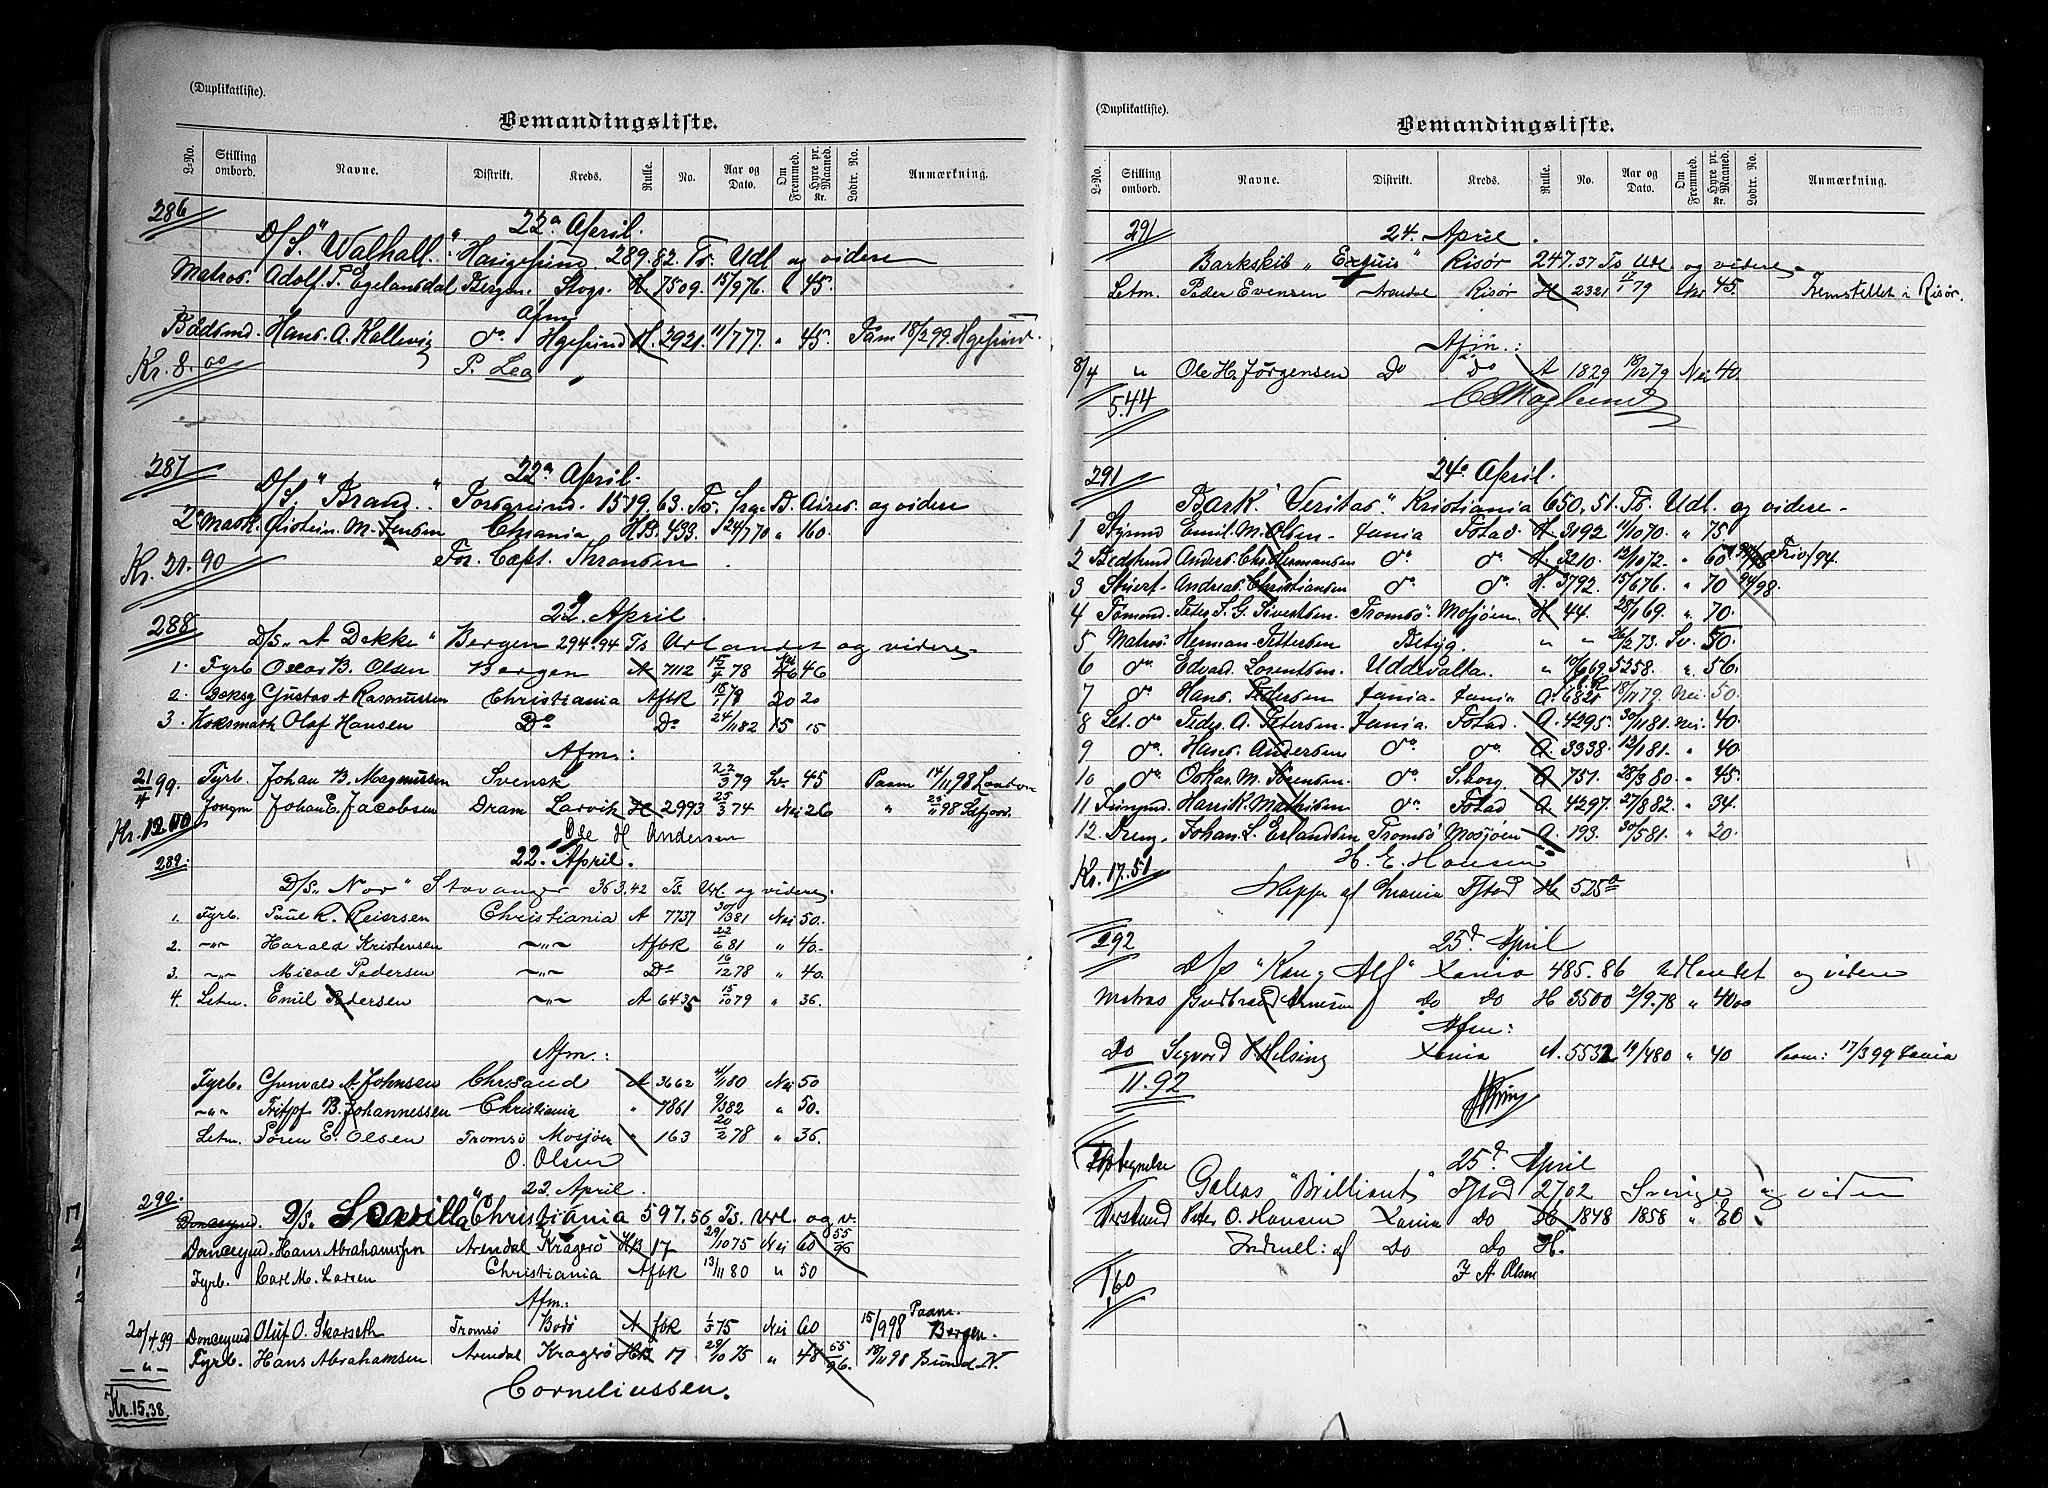 (Duplikatliste).
Bemandingsliste.
L-No. Stilling ombord. Navne. Distrikt. Kreds. Rulle. No. Aar og Dato. Om Fremmed. Hyre pr. Maaned. Kr. Lodtr. No. Anmærkning.
286 22a April.
D/S. "Walhall". 289.82. Ts. Udl og videre
Matros. Adolf. Bergen. H. 7509. 15/9 76 45.
Afm
Baadsmd. Hans. A. Kallevig do H. 2921. 11/7 77. " 45. Paam 18/2 99
Kr. 8.00 P. Lea
287 22a April.
D/S "Brand." 1519.63. Ts. B. Aires og videre
2n Mask. Øistein. M. Jensen Chrania HB. 439. 24/7 70 " 160.
Kr. 21.90 For. Capt. Thransen
288 22 April.
D/S. "A Dekke" Bergen 294.94 Ts Udlandet og videre
1. Fyrb Oscar B. Olsen Bergen A 7112 15/4 78 46
2. Deksg Gustav A Rasmussen Christiania AfbR 18/1 78 20 20
3. Koksmath Olaf Hansen Do Do 24/11 82 15 15
Afm:
21/4 99. Fyrb. Johan B. Magnussen Svensk 22/3 79 Sv. 45 Paam 14/11 98
Jongm Johan E. Jacobsen Dram Larvik H 2993 25/3 74 Nei 26 "
Kr. 12.00 Ole H Andersen
289. 22. April.
D/S. "Nor" Stavanger 363.42 Ts. Udl. og videre
1. Fyrb. Paul R. Reiersen Christiania A 7737 30/3 81 Nei 50.
2. -"- Harald Kristensen -"- AfbR 22/6 81 " 40.
3. -"- Micael Pedersen -"- Do 16/12 78 " 40.
4. Letm. Emil Pedersen -"- A 6435 15/10 79 " 36.
Afm:
Fyrb. Gunvald A. Johnsen Chr.sand A 3662 4/11 80 Nei 50
-"- Fritjof B. Johannessen Christiania " 7861 9/3 82 " 50.
Letm. Søren E. Olsen Tromsø Mosjøen " 163 20/2 78 " 36.
O. Olsen
290. 22. April.
D/S. Christiania 597.56 Ts. Udl. og v.
Donceymd. Hans Abrahamssen Arendal Kragerø HB 17 29/10 75 Nei 60 55/96
Fyrb. Carl M. Larsen Christiania AfbR 13/11 80 " 50
Afm:
20/4 99 Donceymd Oluf O. Skarseth Tromsø Bodø A fbR 1/5 75 Nei 60 15/9 98 Paam. Bergen.
-"- Fyrb. Hans Abrahamsen Arendal Kragerø HB 17 29/10 75 " 48 55/96. 18/11 98 Sund N.
Kr. 15.38 Corneliussen.
(Duplikatliste).
Bemandingsliste.
L-No. Stilling ombord. Navne. Distrikt. Kreds. Rulle. No. Aar og Dato. Om Fremmed. Hyre pr. Maaned. Kr. Lodtr. No. Anmærkning.
291 24. April.
Barkskib " " Risør 247.37 Ts Udl. og videre
Letm. Peder Evensen Arendal Risør H 2321 17/1 79 45. Fremstillet i Risør.
Afm.:
8/4 " Ole H. Jørgensen Do Do A 1829 18/12 79 Nei 40.
5.44
291 24de April.
Bark "Veritas." Kristiania 650,51. Ts. Udl. og videre
1 Styrmd Emil. M. Olsen - Xania Fstad. H 3192 11/10 70. " 75
2 Bedstmd Anders. Chr. Hermansen do. do. H 3210. 12/10 72. " 60
3 Stuert. Andreas. Christiansen do. do. H 3792. 15/6 76. " 70 24/98.
4 Tømmd. Peder S. G. Sivertsen. Tromsø. Mosjøen. H 44. 28/1 69. " 70.
5 Matros. Herman Pettersen " " 26/2 73. Sv. 50.
6 do. Edvard. Lorentsen. Uddevalla. " 5258. " 56.
7 do. Hans. Pedersen Xania. Xania A. 6821 18/11 79. Nei. 50.
8 Let. do. Peder. A. Petersen Xania. Fstad. A. 4295. 30/11 81. Nei. 40.
9 do. Hans. Andersen do. do. A. 3338. 12/1 81. " 40.
10 do. Oskar. M. Sørensen. do. S.borg A 751. 28/3 80. " 45.
11 Jungmd. Henrik. Mathisen do. Fstad A. 4297. 27/8 82. " 34.
12. Dreng. Johan. L. Erlandsen Tromsø Mosjøen A. 193. 30/5 81. " 20.
Kr. 17.51 H. E. Hansen
af Xrania Fstad H 525a
292 25d April
D/S "Kong Alf" Xania 485.86 Udlandet og videre
Matros Gudbrand Arnesen do do H 3500 2/9.78 " 40.00
Afm:
do Sigvord Helsing Xania A. 5532 19/4 80 " 40 Paam: 17/3 99 Xania
11.92
25d April
Galeas "Brilliant" Fstad 27.02 Sverige og videre
Peter O. Hansen Xania Do H 1848 1858 " 60.
af Do Do H.
J A Olsen
1.60